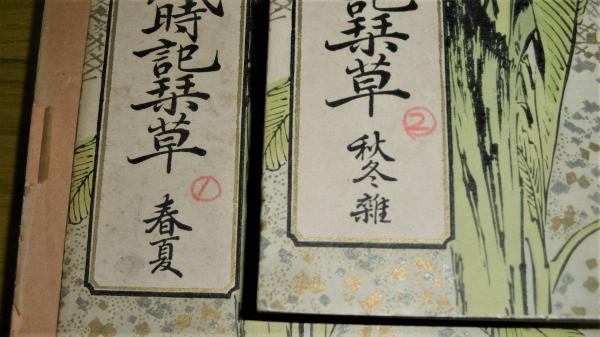 時記栞草
①
春夏
記栞草
②
秋冬雜